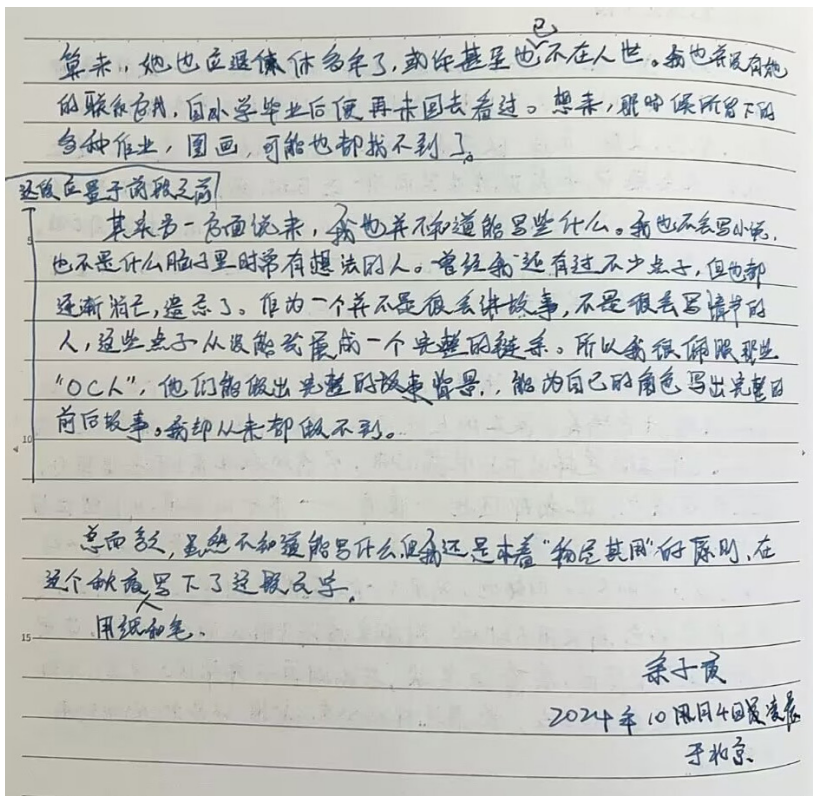 算来，她也应退休多年了，或许甚至也已不在人世。我也并没有她
的联系方式，自小学毕业后便再未回去看过。想来，那时候所留下的
各种作业，图画，可能也都找不到了。
这段应置于前段之前
其实另一方面说来，我也并不知道能写些什么。我也不会写小说，
5
也不是什么脑子里时常有想法的人。曾经我还有过不少点子，但也都
逐渐消亡，遗忘了。作为一个并不是很会讲故事，不是很会写情节的
人，这些点子从没能发展成一个完整的链条。所以我很佩服那些
“OC人”，他们能做出完整的故事背景，能为自己的角色写出完整的
前后故事。我却从来都做不到。
10
总而言之，虽然不知道能写什么但我还是本着“物尽其用”的原则，在
这个秋夜写下了这段文字。
用纸和笔，
15
2024年10月4日凌晨
于北京